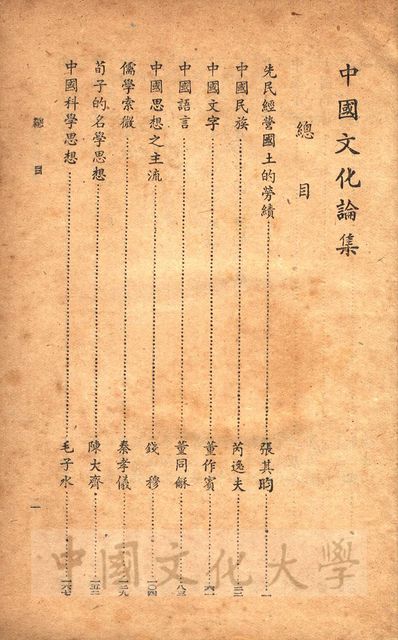 中國文化論集
總目
先民經營國土的勞績 張其昀 一
中國民族 芮逸夫 三三
中國文字 董作賓 六一
中國語言 董同龢 八三
中國思想之主流 錢穆 一〇四
儒學索微 秦孝儀 一二九
荀子的名學思想 陳大齊 一五三
中國科學思想 毛子水 一六七
總目 一
中國文化大學